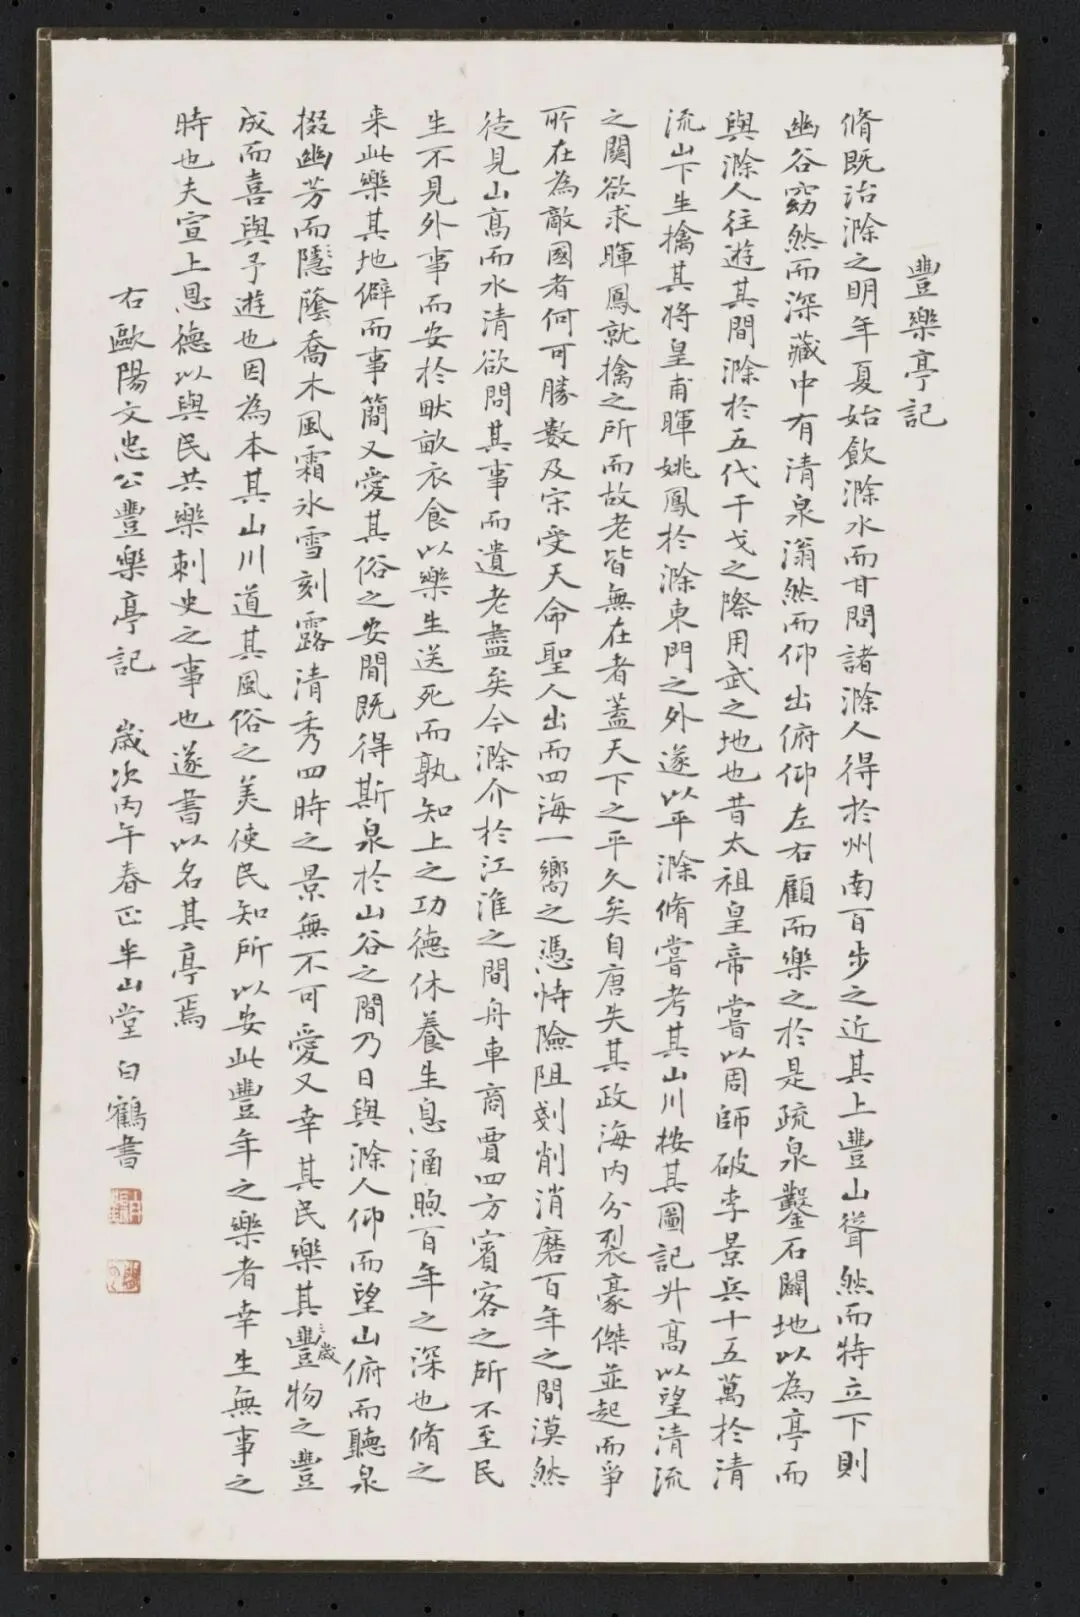 豐樂亭記
脩既治滁之明年夏始飲滁水而甘問諸滁人得於州南百步之近其上豐山聳然而特立下則
幽谷窈然而深藏中有清泉滃然而仰出俯仰左右顧而樂之於是疏泉鑿石闢地以為亭而
與滁人往遊其間滁於五代干戈之際用武之地也昔太祖皇帝嘗以周師破李景兵十五萬於清
流山下生擒其將皇甫暉姚鳳於滁東門之外遂以平滁脩嘗考其山川按其圖記升高以望清流
之關欲求暉鳳就擒之所而故老皆無在者蓋天下之平久矣自唐失其政海内分裂豪傑並起而爭
所在為敵國者何可勝數及宋受天命聖人出而四海一嚮之憑恃險阻剗削消磨百年之間漠然
徒見山高而水清欲問其事而遺老盡矣今滁介於江淮之間舟車商賈四方賓客之所不至民
生不見外事而安於畎畝衣食以樂生送死而孰知上之功德休養生息涵煦百年之深也脩之
来此樂其地僻而事簡又愛其俗之安閒既得斯泉於山谷之間乃日與滁人仰而望山俯而聽泉
掇幽芳而隱蔭喬木風霜冰雪刻露清秀四時之景無不可愛又幸其民樂其豐歲物之豐
成而喜與予遊也因為本其山川道其風俗之美使民知所以安此豐年之樂者幸生無事之
時也夫宣上恩德以與民共樂刺史之事也遂書以名其亭焉
右歐陽文忠公豐樂亭記 歲次丙午春正半山堂白鶴書